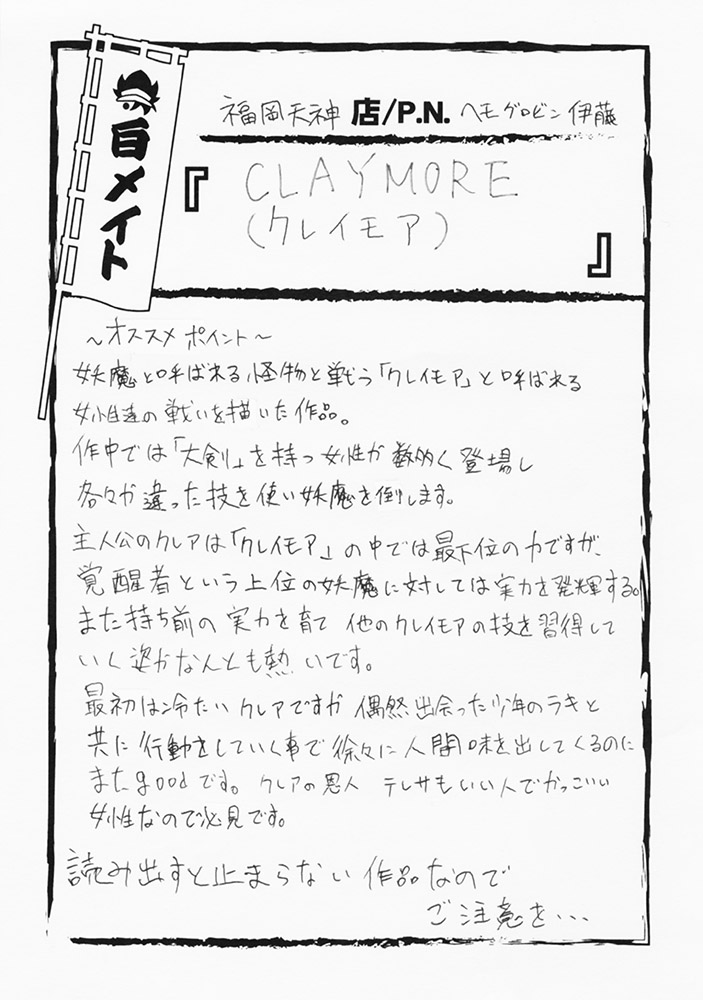 白メイト
福岡天神 店/P.N. ヘモグロビン伊藤
『CLAYMORE
(クレイモア)』
～オススメポイント～
妖魔と呼ばれる怪物と戦う「クレイモア」と呼ばれる
女性達の戦いを描いた作品。
作中では「大剣」を持つ女性が数多く登場し
各々が違った技を使い妖魔を倒します。
主人公のクレアは「クレイモア」の中では最下位の力ですが、
覚醒者という上位の妖魔に対しては実力を発揮する。
また持ち前の実力を育て他のクレイモアの技を習得して
いく姿がなんとも熱いです。
最初は冷たいクレアですが偶然出会った少年のラキと
共に行動をしていく事で徐々に人間味を出してくるのに
またgoodです。クレアの恩人 テレサもいい人でかっこいい
女性なので必見です。
読み出すと止まらない作品なので
ご注意を...